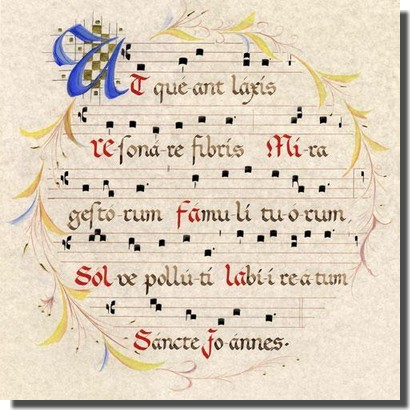 UT qué-ant láxis
re soná-re fibris Mi-ra
gestó-rum fámu-lí tu-ó-rum,
Sol-ve pollú-ti lábi-i re-a-tum
Sáncte Jo-ánnes.